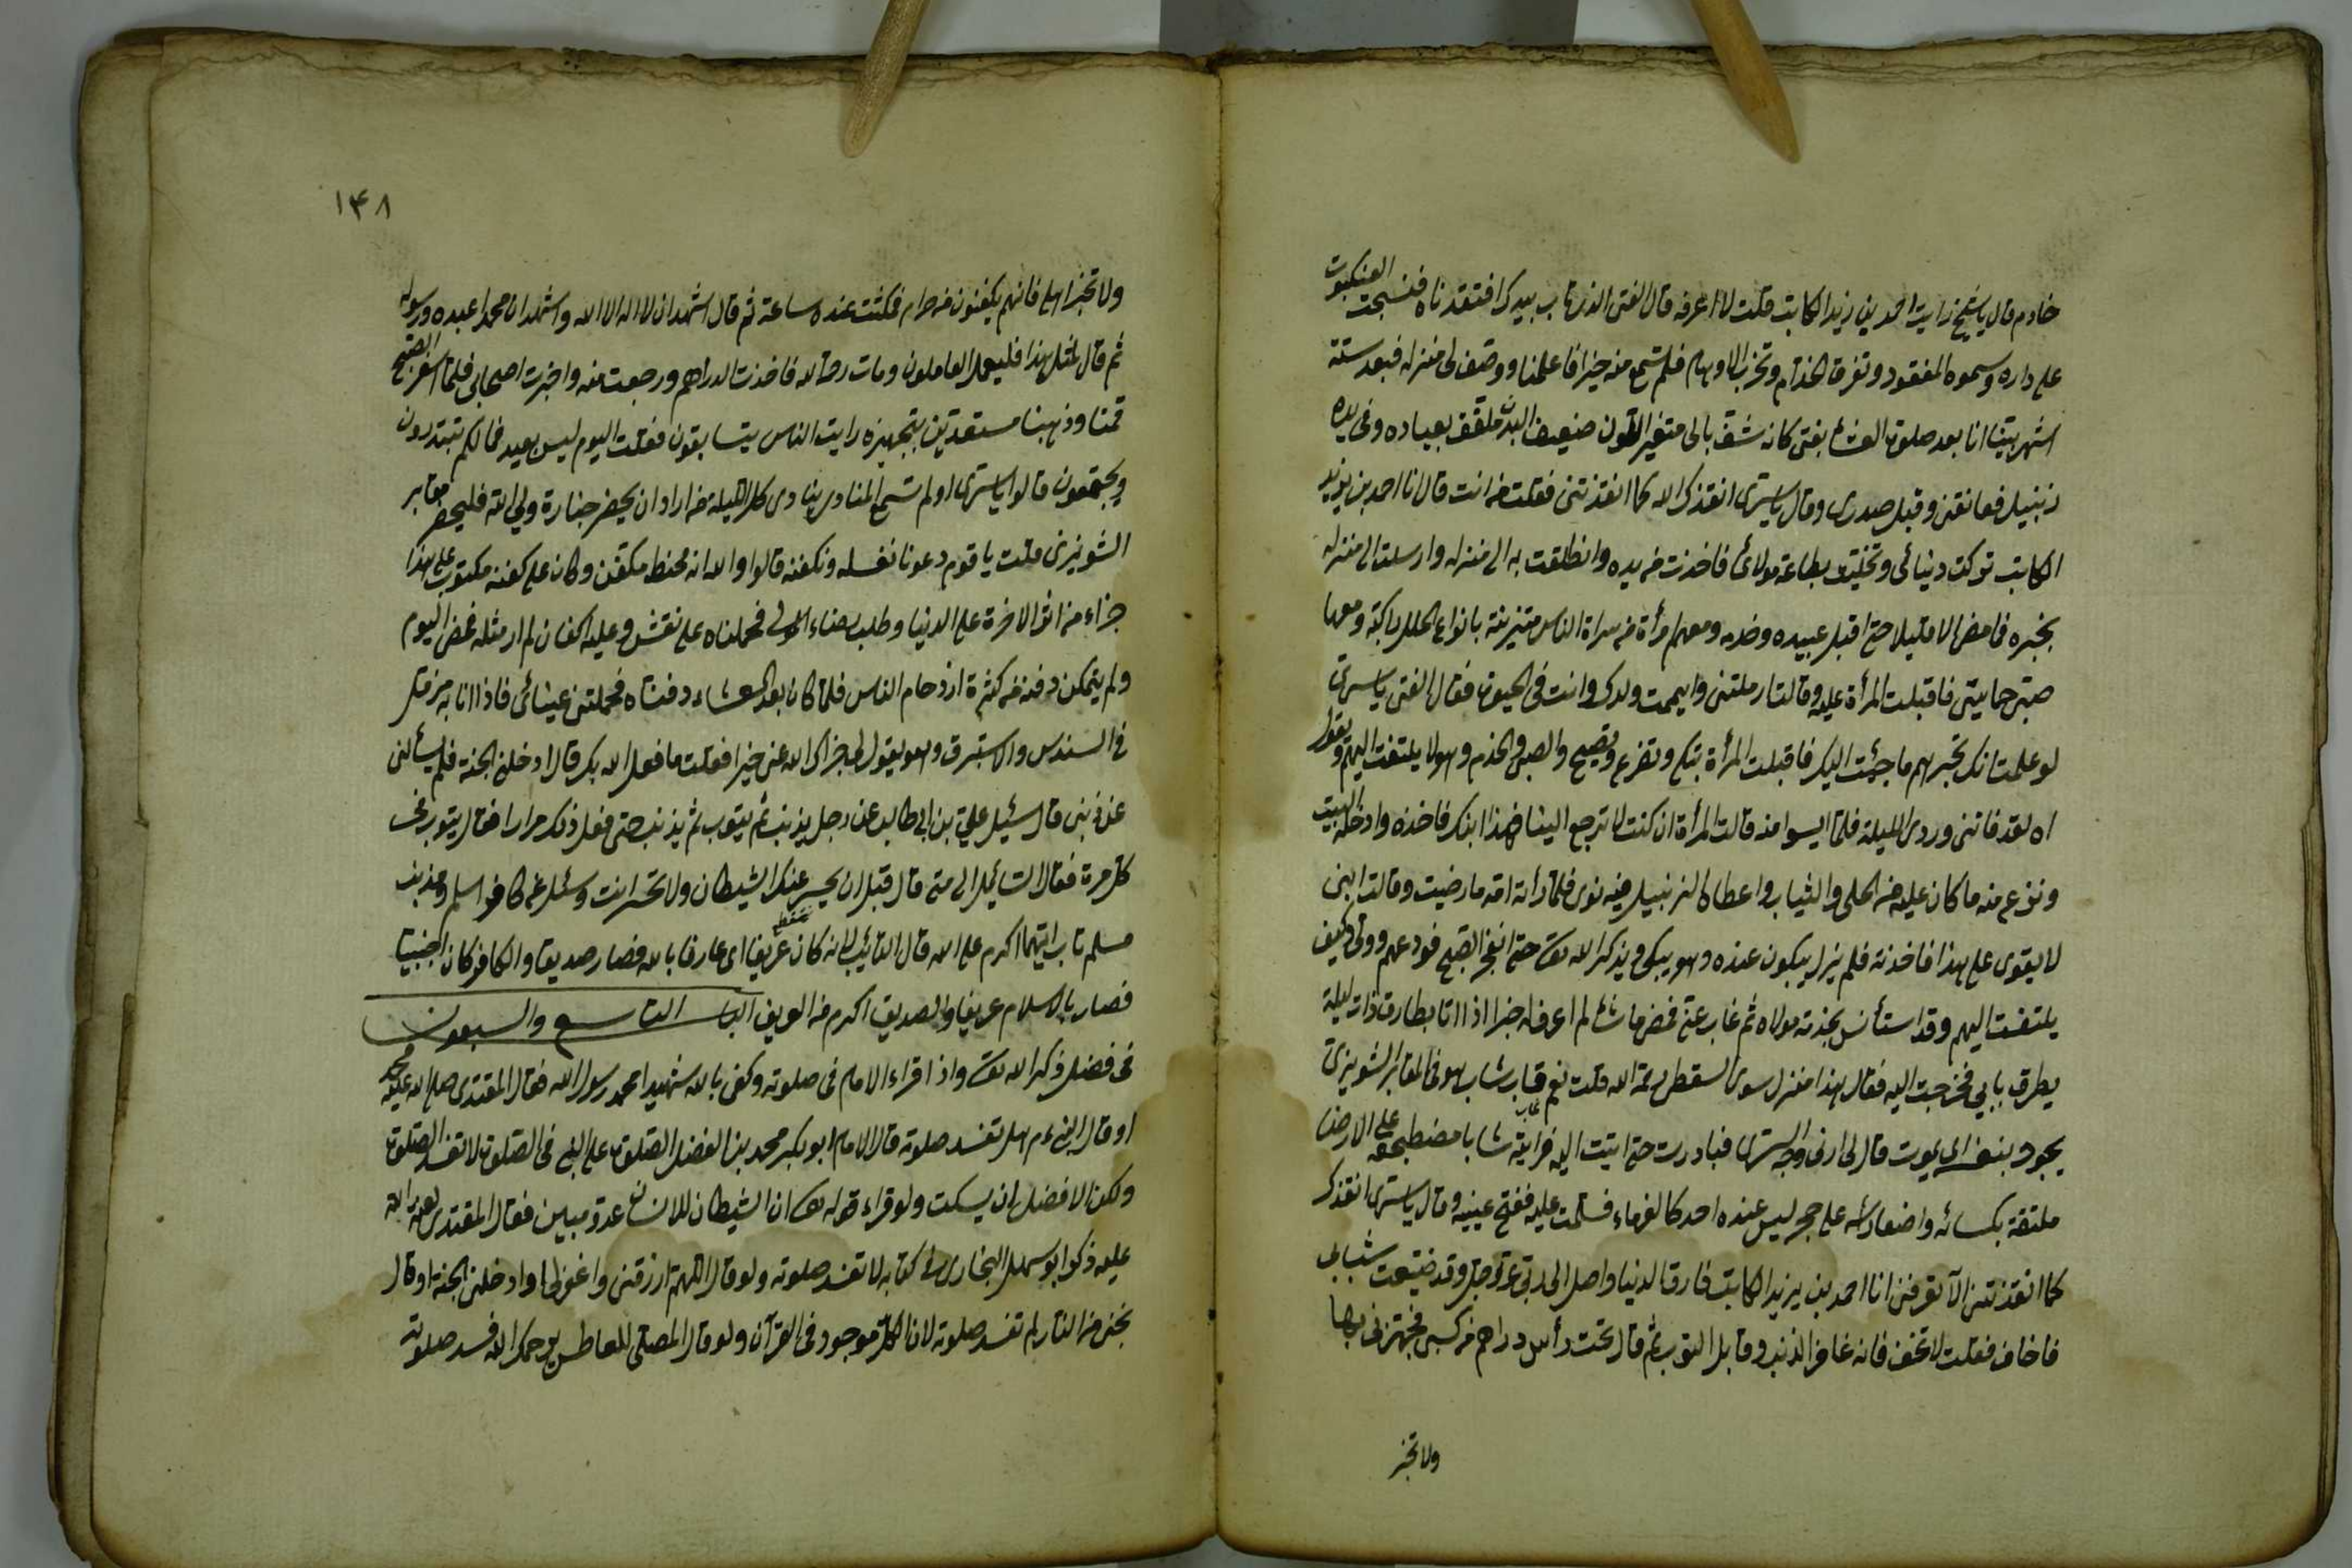 خادم قال يا شيخ رايت احمد بن يزيد الكاتب قلت لا اعرفه قال الفتى الذى تاب بيدك افتقدناه فنسجت العنكبوت
على داره وسموه المفقود وتفرق الخدام وتخرب الاوهام فلم تسمع منه خبرا فاعلمنا ووصف لى منزله فبعد ستة
اشهر بينا انا بعد صلوة العشاء بفتى كانه شق بالى متغير اللون ضعيف البدن ملفف بعباده وفى يده
زنبيل فعانقنى وقبل صدرى وقال يا سرى انقذك الله كما انقذتنى فقلت من انت قال انا احمد بن يزيد
الكاتب تركت دنيائى وتخليت بطاعة مولائى فاخذت من يده وانطلقت به الى منزله وارسلت الى منزله
بخبره فما مضى الا قليلا حتى اقبل عبيده وخدمه ومعهم امرأة من سراة الناس متزينة بانواع الحلل راكبة ومعها
فاقبلت المرأة عليه وقالت ارملتنى وايتمت ولدك وانت فى الحيوة فقال الفتى يا سرى
لو علمت انك تخبرهم ما جئت اليك فاقبلت المرأة تبكى وتفزع وتصيح والصبى والخدم وهو لا يلتفت اليهم ويقول
اه لقد فاتنى وردى الليلة فلما ايسوا منه قالت المرأة ان كنت لا ترجع الينا فهذا ابنك فاخذه وادخله البيت
ونزع منه ما كان عليه من الحلى والثياب واعطاه الزنبيل فيه نوى فلما رأته امه ما رضيت وقالت ابنى
لا يقوى على هذا فاخذته فلم يزل يبكون عنده وهو يبكى ويذكر الله تعالى حتى انفجر الصبح فودعهم وولى وكيف
يلتفت اليهم وقد استأنس بخدمة مولاه ثم غاب عنى فمضى ما شاء لم اعرف له خبرا اذا انا بطارق ذات ليلة
يطرق بابى فخرجت اليه فقال هذا منزل سرى السقطى رحمة الله قلت نعم قال شاب هو فى المقابر الشونيزى
يجود بنفسه الى يموت قال لى ارنى وجه السرى فبادرت حتى اتيت اليه فرايته شابا مضطجعة على الارض
ملتفة بكسائه واضعا رأسه على حجر ليس عنده احد كالغرباء فسلمت عليه ففتح عينيه وقال يا سرى انقذك
كما انقذتنى الا تعرفنى انا احمد بن يزيد الكاتب فارق الدنيا واصل الى ربى عز وجل وقد ضيعت شبابى
فاخاف فقلت لا تخف فانه غافر الذنب وقابل التوب ثم قال تحت رأسى دراهم من كسبى فجهزنى بها
ولا تخبر
١٤٨
ولا تخبر اهلى فانهم يكفنون من حرام فمكثت عنده ساعة ثم قال اشهد ان لا اله الا الله واشهد ان محمدا عبده ورسوله
ثم قال لمثل هذا فليعمل العاملون ومات رحمه الله فاخذت الدراهم ورجعت منه واخبرت اصحابى فلما اسفر الصبح
قمنا وذهبنا مستعدين بتجهيزه رايت الناس يتسابقون فقلت اليوم ليس بعيد فما لكم تبتدرون
ويجتمعون قالوا يا سرى او لم تسمع المنادى ينادى كل الليلة من اراد ان يحضر جنازة ولى الله فليحضر مقابر
الشونيزى قلت يا قوم دعونا نغسله ونكفنه قالوا والله انه محنط مكفن وكان على كفنه مكتوب على هذا
جزاء من اثر الاخرة على الدنيا وطلب رضاء المولى فحملناه على نعش وعليه اكفان لم ار مثله فمضى اليوم
ولم يتمكن دفنه من كثرة ازدحام الناس فلما كان بعد العشاء دفناه فحملتنى عينائى فاذا انا به يرفل
فى السندس والاستبرق وهو يقول لى جزاك الله عنى خيرا فقلت ما فعل الله بك قال ادخلنى الجنة فلم يسألنى
عن ذنبى قال سئيل على بن ابى طالب عن رجل يذنب ثم يتوب ثم يذنب حتى فعل ذلك مرارا فقال يتوب فى
كل مرة فقال السائيل الى متى قال قبل ان يحسر عنك الشيطان ولا تخسر انت وسئل عن كافر اسلم ومذنب
مسلم تاب ايتهما اكرم على الله قال التائيب لانه كان عريفا اى عارفا بالله فصار صديقا والكافر كان اجنبيا
فصار بالاسلام عريفا والصديق اكرم من العريف الباب التاسع والسبعون
فى فضل ذكر الله تعالى واذا قراء الامام فى صلوته وكفى بالله شهيدا محمد رسول الله فقال المقتدى صلى الله عليه
او قال النبى عم هل تفسد صلوته قال الامام ابو بكر محمد بن الفضل الصلوة على النبى فى الصلوة لا تفسد الصلوة
ولكن الافضل ان يسكت ولو قراء قوله تعالى ان الشيطان للانسان عدو مبين فقال المقتدى لعنة الله
عليه ذكر ابو سهل البخارى فى كتابه لا تفسد صلوته ولو قال اللهم ارزقنى واغفر لى او ادخلنى الجنة او قال
نجنى من النار لم تفسد صلوته لان الكل موجود فى القرآن ولو قال المصلى للعاطس يرحمك الله فسد صلوته